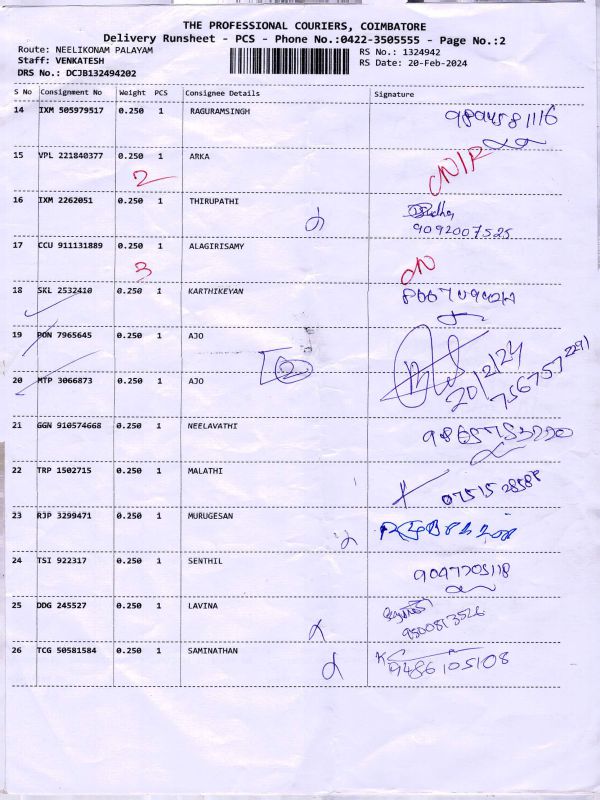 THE PROFESSIONAL COURIERS, COIMBATORE
Delivery Runsheet - PCS - Phone No.:0422-3505555 - Page No.:2
Route: NEELIKONAM PALAYAM
RS No.: 1324942
Staff: VENKATESH
RS Date: 20-Feb-2024
DRS No.: DCJB132494202
S No Consignment No Weight PCS Consignee Details Signature
14 IXM 505979517 0.250 1 RAGURAMSINGH 9894581116
15 VPL 221840377 0.250 1 ARKA
2
16 IXM 2262051 0.250 1 THIRUPATHI
9092007525
17 CCU 911131889 0.250 1 ALAGIRISAMY
3
18 SKL 2532410 0.250 1 KARTHIKEYAN
19 PON 7965645 0.250 1 AJO
2
20/2/24
20 MTP 3066873 0.250 1 AJO
21 GGN 910574668 0.250 1 NEELAVATHI
22 TRP 1502715 0.250 1 MALATHI
23 RJP 3299471 0.250 1 MURUGESAN
24 TSI 922317 0.250 1 SENTHIL 9047705118
25 DDG 245527 0.250 1 LAVINA
9500813526
26 TCG 50581584 0.250 1 SAMINATHAN 9486105108